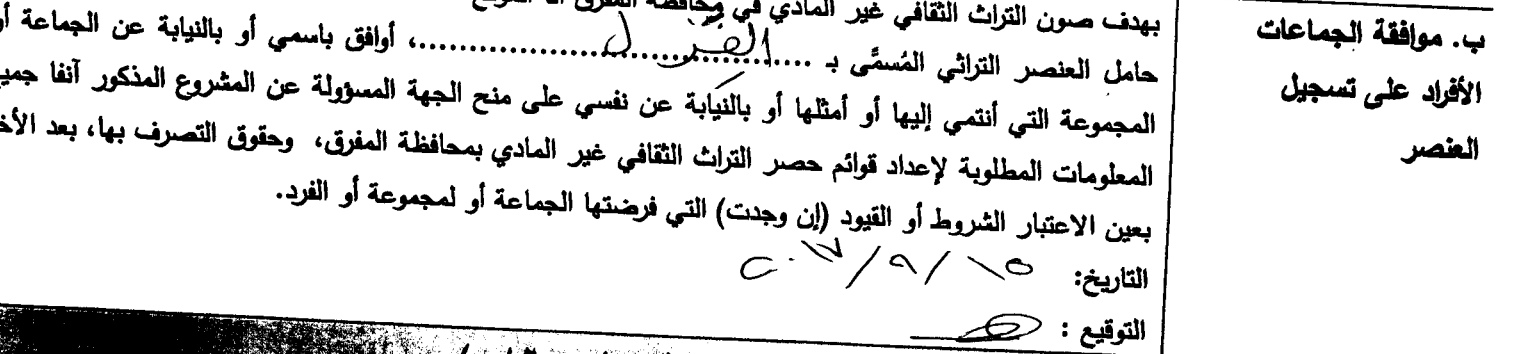 ب. موافقة الجماعات
الأفراد على تسجيل
العنصر
بهدف صون التراث الثقافي غير المادي في محافظة المفرق أنا الموقع
حامل العنصر التراثي المُسمَّى بـ .....الغزل.....، أوافق باسمي أو بالنيابة عن الجماعة أو
المجموعة التي أنتمي إليها أو أمثلها أو بالنيابة عن نفسي على منح الجهة المسؤولة عن المشروع المذكور آنفا جميع
المعلومات المطلوبة لإعداد قوائم حصر التراث الثقافي غير المادي بمحافظة المفرق، وحقوق التصرف بها، بعد الأخ
بعين الاعتبار الشروط أو القيود (إن وجدت) التي فرضتها الجماعة أو لمجموعة أو الفرد.
التاريخ: ١٥/٩/٢٠١٧
التوقيع :